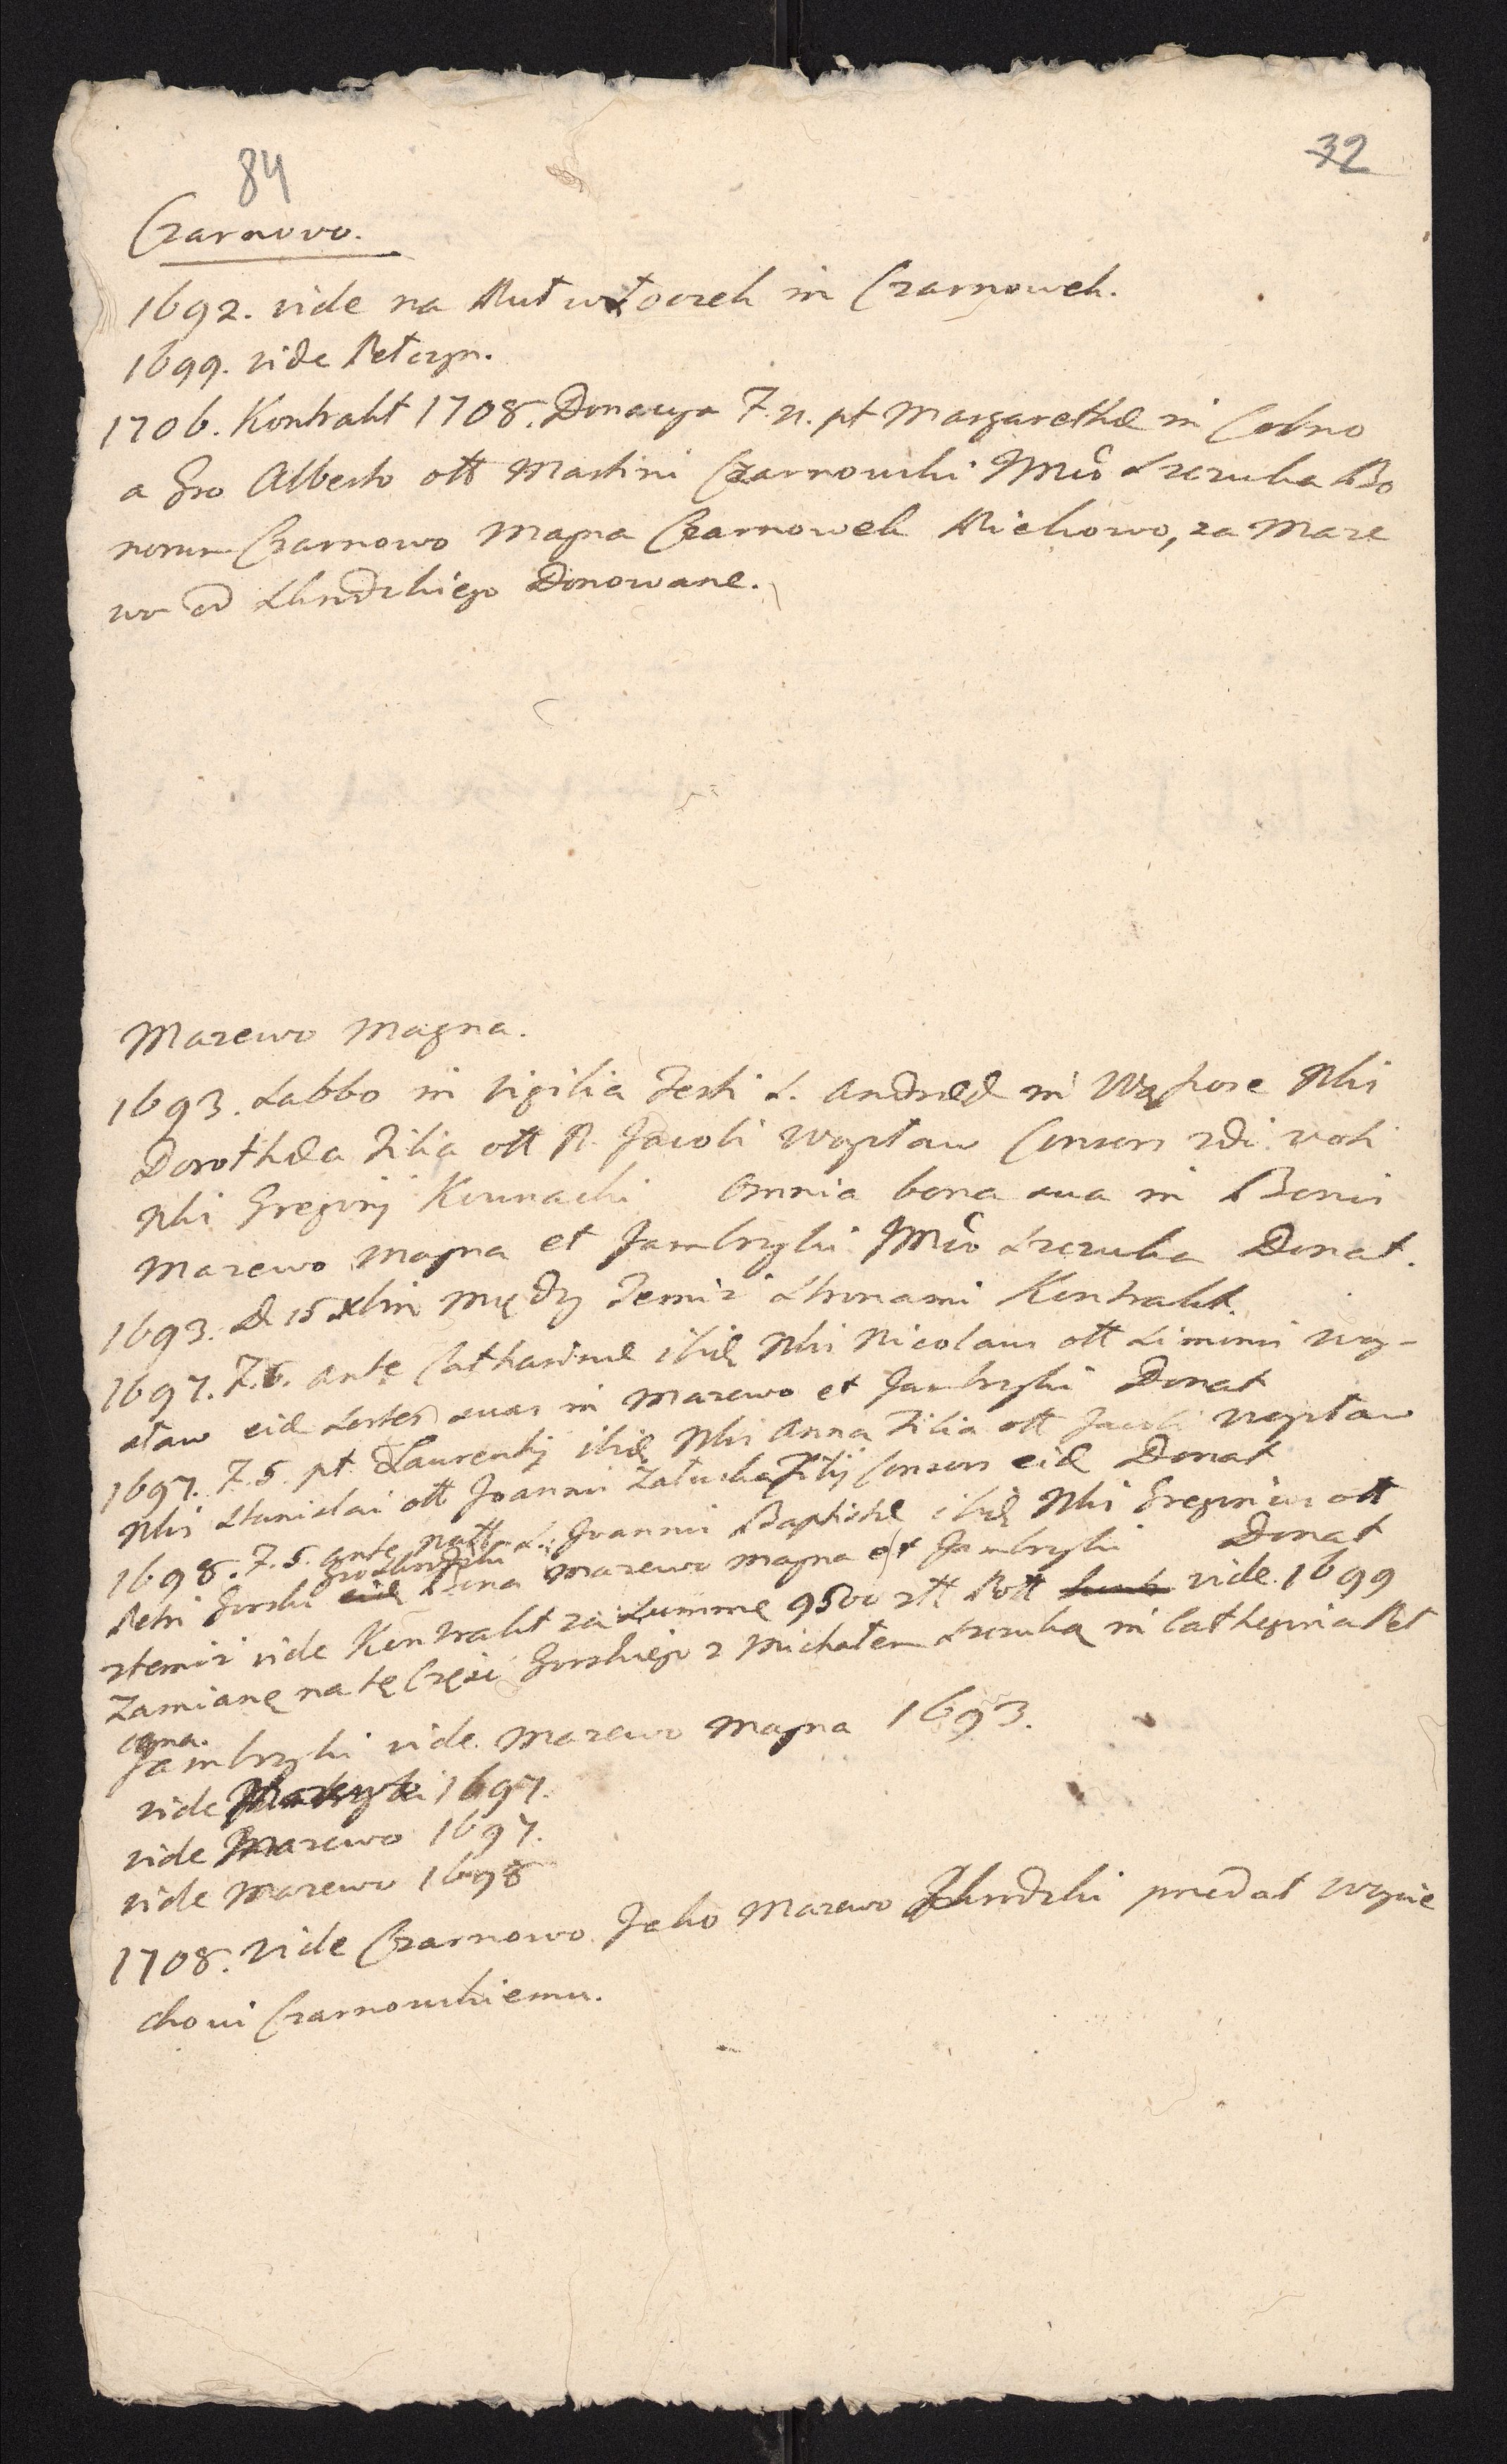 84
32
Czarnowo.
1692. vide na in Czarnowek.
1699. vide Petczyn.
1706. Kontrakt 1708. Donacya F. pt Margarethæ in
a Gro Alberto ott Martini Czarnowski Szczuka Bo
norum Czarnowo Magna Czarnowek Michowo, za Marze
wo od Donowane.
Marzewo Magna.
1693. Sabbo in vigilia Festi S. Andreæ in Wąsosze Nbis
Dorothæa Filia ott N. Jacobi Woysław Consors 2di voti
Nbis Gregorij omnia bona sua in Bonis
Marzewo Magna et Jambrzyki Szczuka Donat.
1693. D. 15 Xbris między Temiż Stronami Kontrakt.
1697. F. 6. ante Catharinæ ibid Nbis Nicolaus ott Simonis Woy-
sław eid Sortes suas in Marzewo et Jambrzyki Donat
1697. F. 5. pt Laurentij ibid Nbis Anna Filia ott Jacobi Woysław
Nbis Stanislai ott Joannis Filij Consors eid Donat
1698. F. 5. ante natt S. Joannis Baptistæ ibid Nbis Gregorius ott
Petri Gorski eid Bona Marzewo Magna et Jambrzyki Donat
ztemiż vide Kontrakt za Summę 9500 ztt Pott vide. 1699
Zamianę na tę Część Gorskiego z Michałem Szczuką in Cathegoria Pet
czyna.
Jambrzyki vide Marzewo Magna 1693.
vide 1697.
vide Marzewo 1697.
vide Marzewo 1698
1708. vide Czarnowo Jako Marzewo przedał Woycie
chowi Czarnowskiemu.